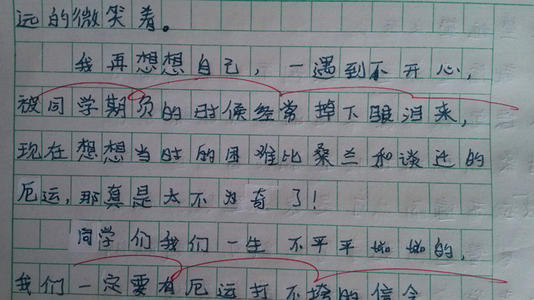 远的微笑着。
我再想想自己，一遇到不开心，
被同学期负的时候经常掉下泪来，
现在想想当时的困难比桑兰和谈迁的
厄运，那真是太不为奇了！
同学们我们一生不平平的，
我们一定要有厄运打不垮的信念